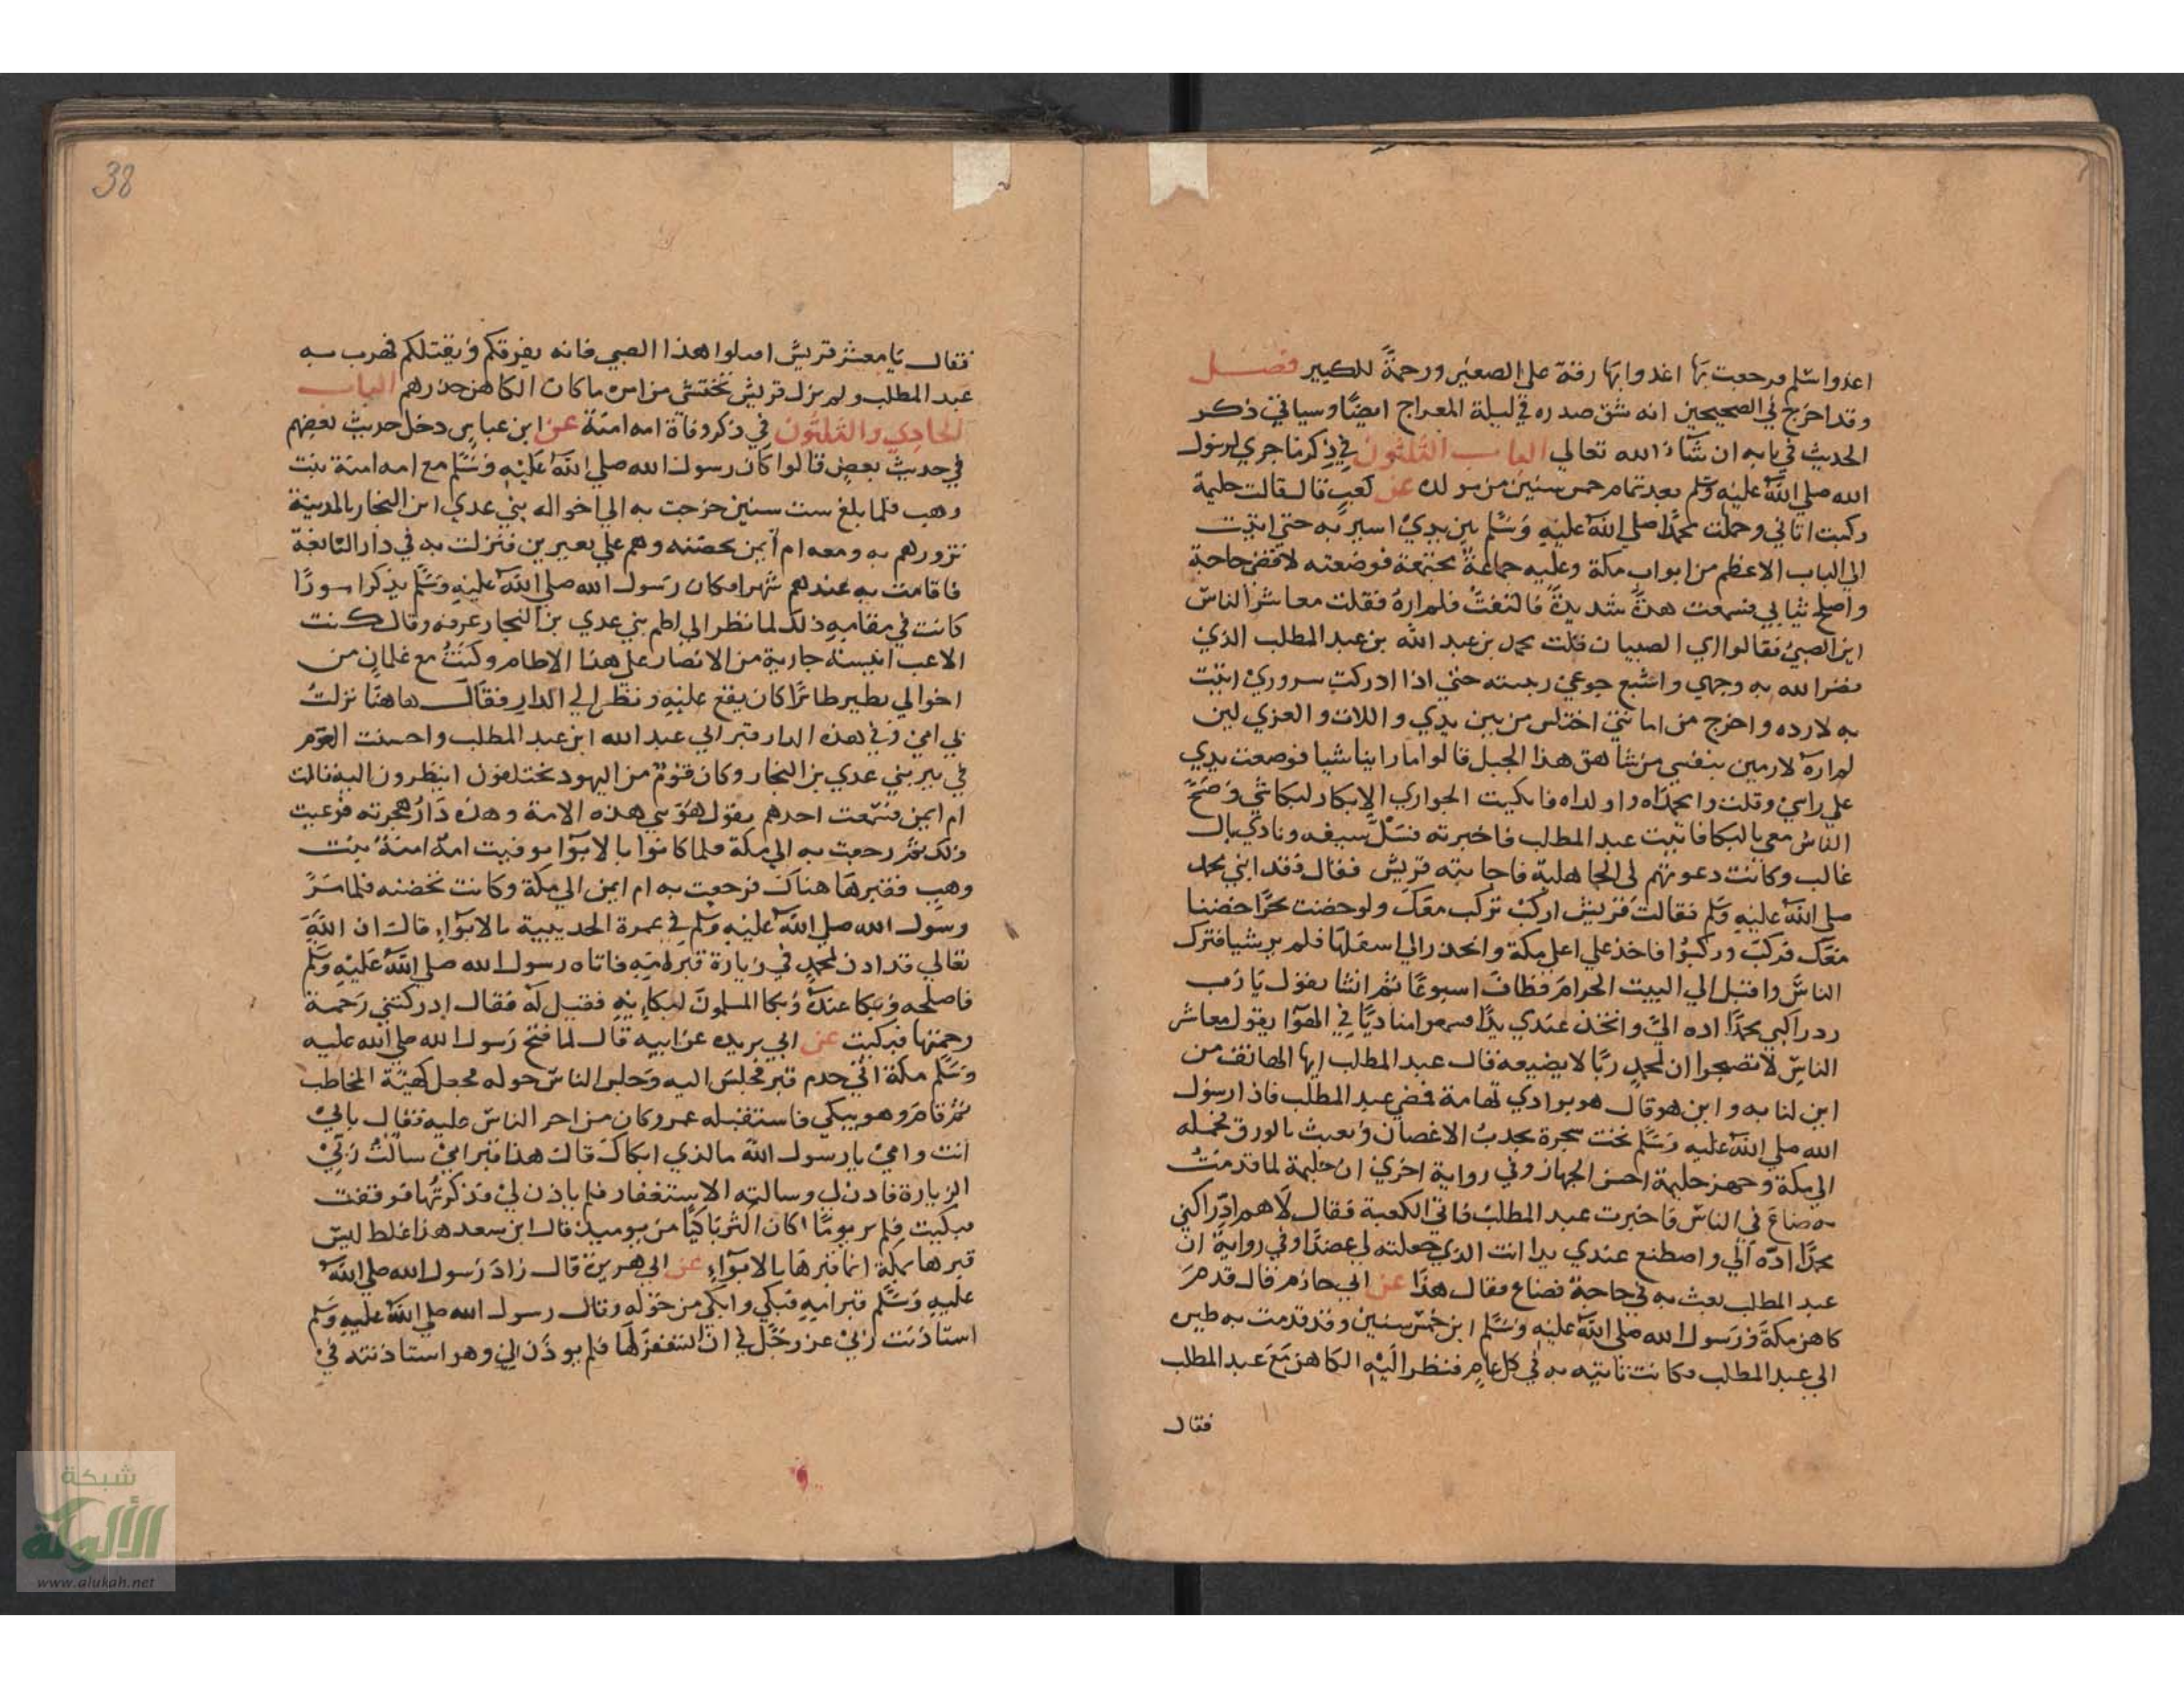 اغدوا سلم فرجعت بها اغدوا بها رقة على الصغير ورحمة للكبير فصل
وقد اخرج في الصحيحين انه شق صدره في ليلة المعراج ايضا وسياتي ذكر
الحديث في بابه ان شاء الله تعالى الباب الثلثون في ذكر ما جرى لرسول
الله صلى الله عليه وسلم بعد تمام خمس سنين من مولده عن كعب قال قالت حليمة
ركبت اتاني وحملت محمدا صلى الله عليه وسلم بين يدي اسير به حتى اتيت
الى الباب الاعظم من ابواب مكة وعليه جماعة مجتمعة فوضعته لاقضي حاجة
واصلح ثيابي فسمعت هدة شديدة فالتفت فلم اره فقلت معاشر الناس
اين الصبي فقالوا اي الصبيان قلت محمد بن عبد الله بن عبد المطلب الذي
نضر الله به وجهي واشبع جوعي ربيته حتى اذا ادركت سروري اتيت
به لارده واخرج من امانتي اختلس من بين يدي واللات والعزي لين
لم اره لارمين بنفسي من شاهق هذا الجبل قالوا ما راينا شيا فوضعت يدي
على راسي وقلت وامحمداه واولداه فابكيت الجواري الابكار لبكائي وضج
الناس معي بالبكا فاتيت عبد المطلب فاخبرته فسل سيفه ونادي يال
غالب وكانت دعوتهم في الجاهلية فاجابته قريش فقال فقد ابني محمد
صلى الله عليه وسلم فقالت قريش اركب نركب معك ولو خضت بحرا خضنا
معك فركب وركبوا فاخذ على اعلى مكة وانحدر الي اسفلها فلم ير شيا فترك
الناس واقبل الي البيت الحرام فطاف اسبوعا ثم انشا يقول يا رب
رد راكبي محمدا اده الي واتخذ عندي يدا فسمعوا مناديا في الهوا يقول معاشر
الناس لا تضجوا ان لمحمد ربا لا يضيعه قال عبد المطلب ايها الهاتف من
اين لنا به واين هو قال هو بوادي تهامة فمضي عبد المطلب فاذا رسول
الله صلى الله عليه وسلم تحت شجرة يجذب الاغصان ويعبث بالورق فحمله
الي مكة وجهز حليمة احسن الجهاز وفي رواية اخري ان حليمة لما قدمت
به ضاع في الناس فاخبرت عبد المطلب فاتي الكعبة فقال لاهم اد راكبي
محمدا اده الي واصطنع عندي يدا انت الذي جعلته لي عضدا وفي رواية ان
عبد المطلب بعث به في حاجة فضاع فقال هذا عن ابي حازم قال قدم
كاهن مكة ورسول الله صلى الله عليه وسلم ابن خمس سنين وقد قدمت به ظيره
الي عبد المطلب وكانت تاتيه به في كل عام فنظر اليه الكاهن مع عبد المطلب
فقال
38
فقال يا معشر قريش اقتلوا هذا الصبي فانه يفرقكم ويقتلكم فهرب به
عبد المطلب ولم تزل قريش تخشى من امره ما كان الكاهن حذرهم الباب
الحادي والثلثون في ذكر وفاة امه امنة عن ابن عباس دخل حديث بعضهم
في حديث بعض قالوا كان رسول الله صلى الله عليه وسلم مع امه امنة بنت
وهب فلما بلغ ست سنين خرجت به الي اخواله بني عدي ابن النجار بالمدينة
تزورهم به ومعه ام ايمن تحضنه وهم علي بعيرين فنزلت به في دار النابغة
فاقامت به عندهم شهرا وكان رسول الله صلى الله عليه وسلم يذكر امورا
كانت في مقامه ذلك لما نظر الي اطم بني عدي بن النجار عرفه وقال كنت
الاعب انيسة جارية من الانصار علي هذا الاطام وكنت مع غلمان من
اخوالي نطير طائرا كان يقع عليه ونظر الي الدار فقال هاهنا نزلت
بي امي وفي هذه الدار قبر ابي عبد الله ابن عبد المطلب واحسنت العوم
في بير بني عدي بن النجار وكان قوم من اليهود يختلفون ينظرون اليه قالت
ام ايمن فسمعت احدهم يقول هو نبي هذه الامة وهذه دار هجرته فوعيت
ذلك ثم رجعت به الي مكة فلما كانوا بالابوآ توفيت امه امنة بنت
وهب فقبرها هناك فرجعت به ام ايمن الي مكة وكانت تحضنه فلما مر
رسول الله صلى الله عليه وسلم في عمرة الحديبية بالابوآء قال ان الله
تعالي قد اذن لمحمد في زيارة قبر امه فاتاه رسول الله صلى الله عليه وسلم
فاصلحه وبكا عنده وبكا المسلمون لبكايه فقيل له فقال ادركتني رحمة
رحمتها فبكيت عن ابي بريده عن ابيه قال لما فتح رسول الله صلى الله عليه
وسلم مكة اتي حدم قبر فجلس اليه وجلس الناس حوله فجعل كهيئة المخاطب
ثم قام وهو يبكي فاستقبله عمر وكان من اجر الناس عليه فقال بابي
انت وامي يا رسول الله ما الذي ابكاك قال هذا قبر امي سالت ربي
الزيارة فاذن لي وسالته الاستغفار فلم ياذن لي فذكرتها فوقفت
فبكيت فلم ير يوما كان اكثر باكيا من يوميذ قال ابن سعد هذا غلط ليس
قبرها بمكة انما قبرها بالابوآء عن ابي هريرة قال زار رسول الله صلى الله
عليه وسلم قبر امه فبكي وابكي من حوله وقال رسول الله صلى الله عليه وسلم
استاذنت ربي عز وجل في ان استغفر لها فلم يوذن لي وهو استاذنته في
شبكة
الألوكة
www.alukah.net